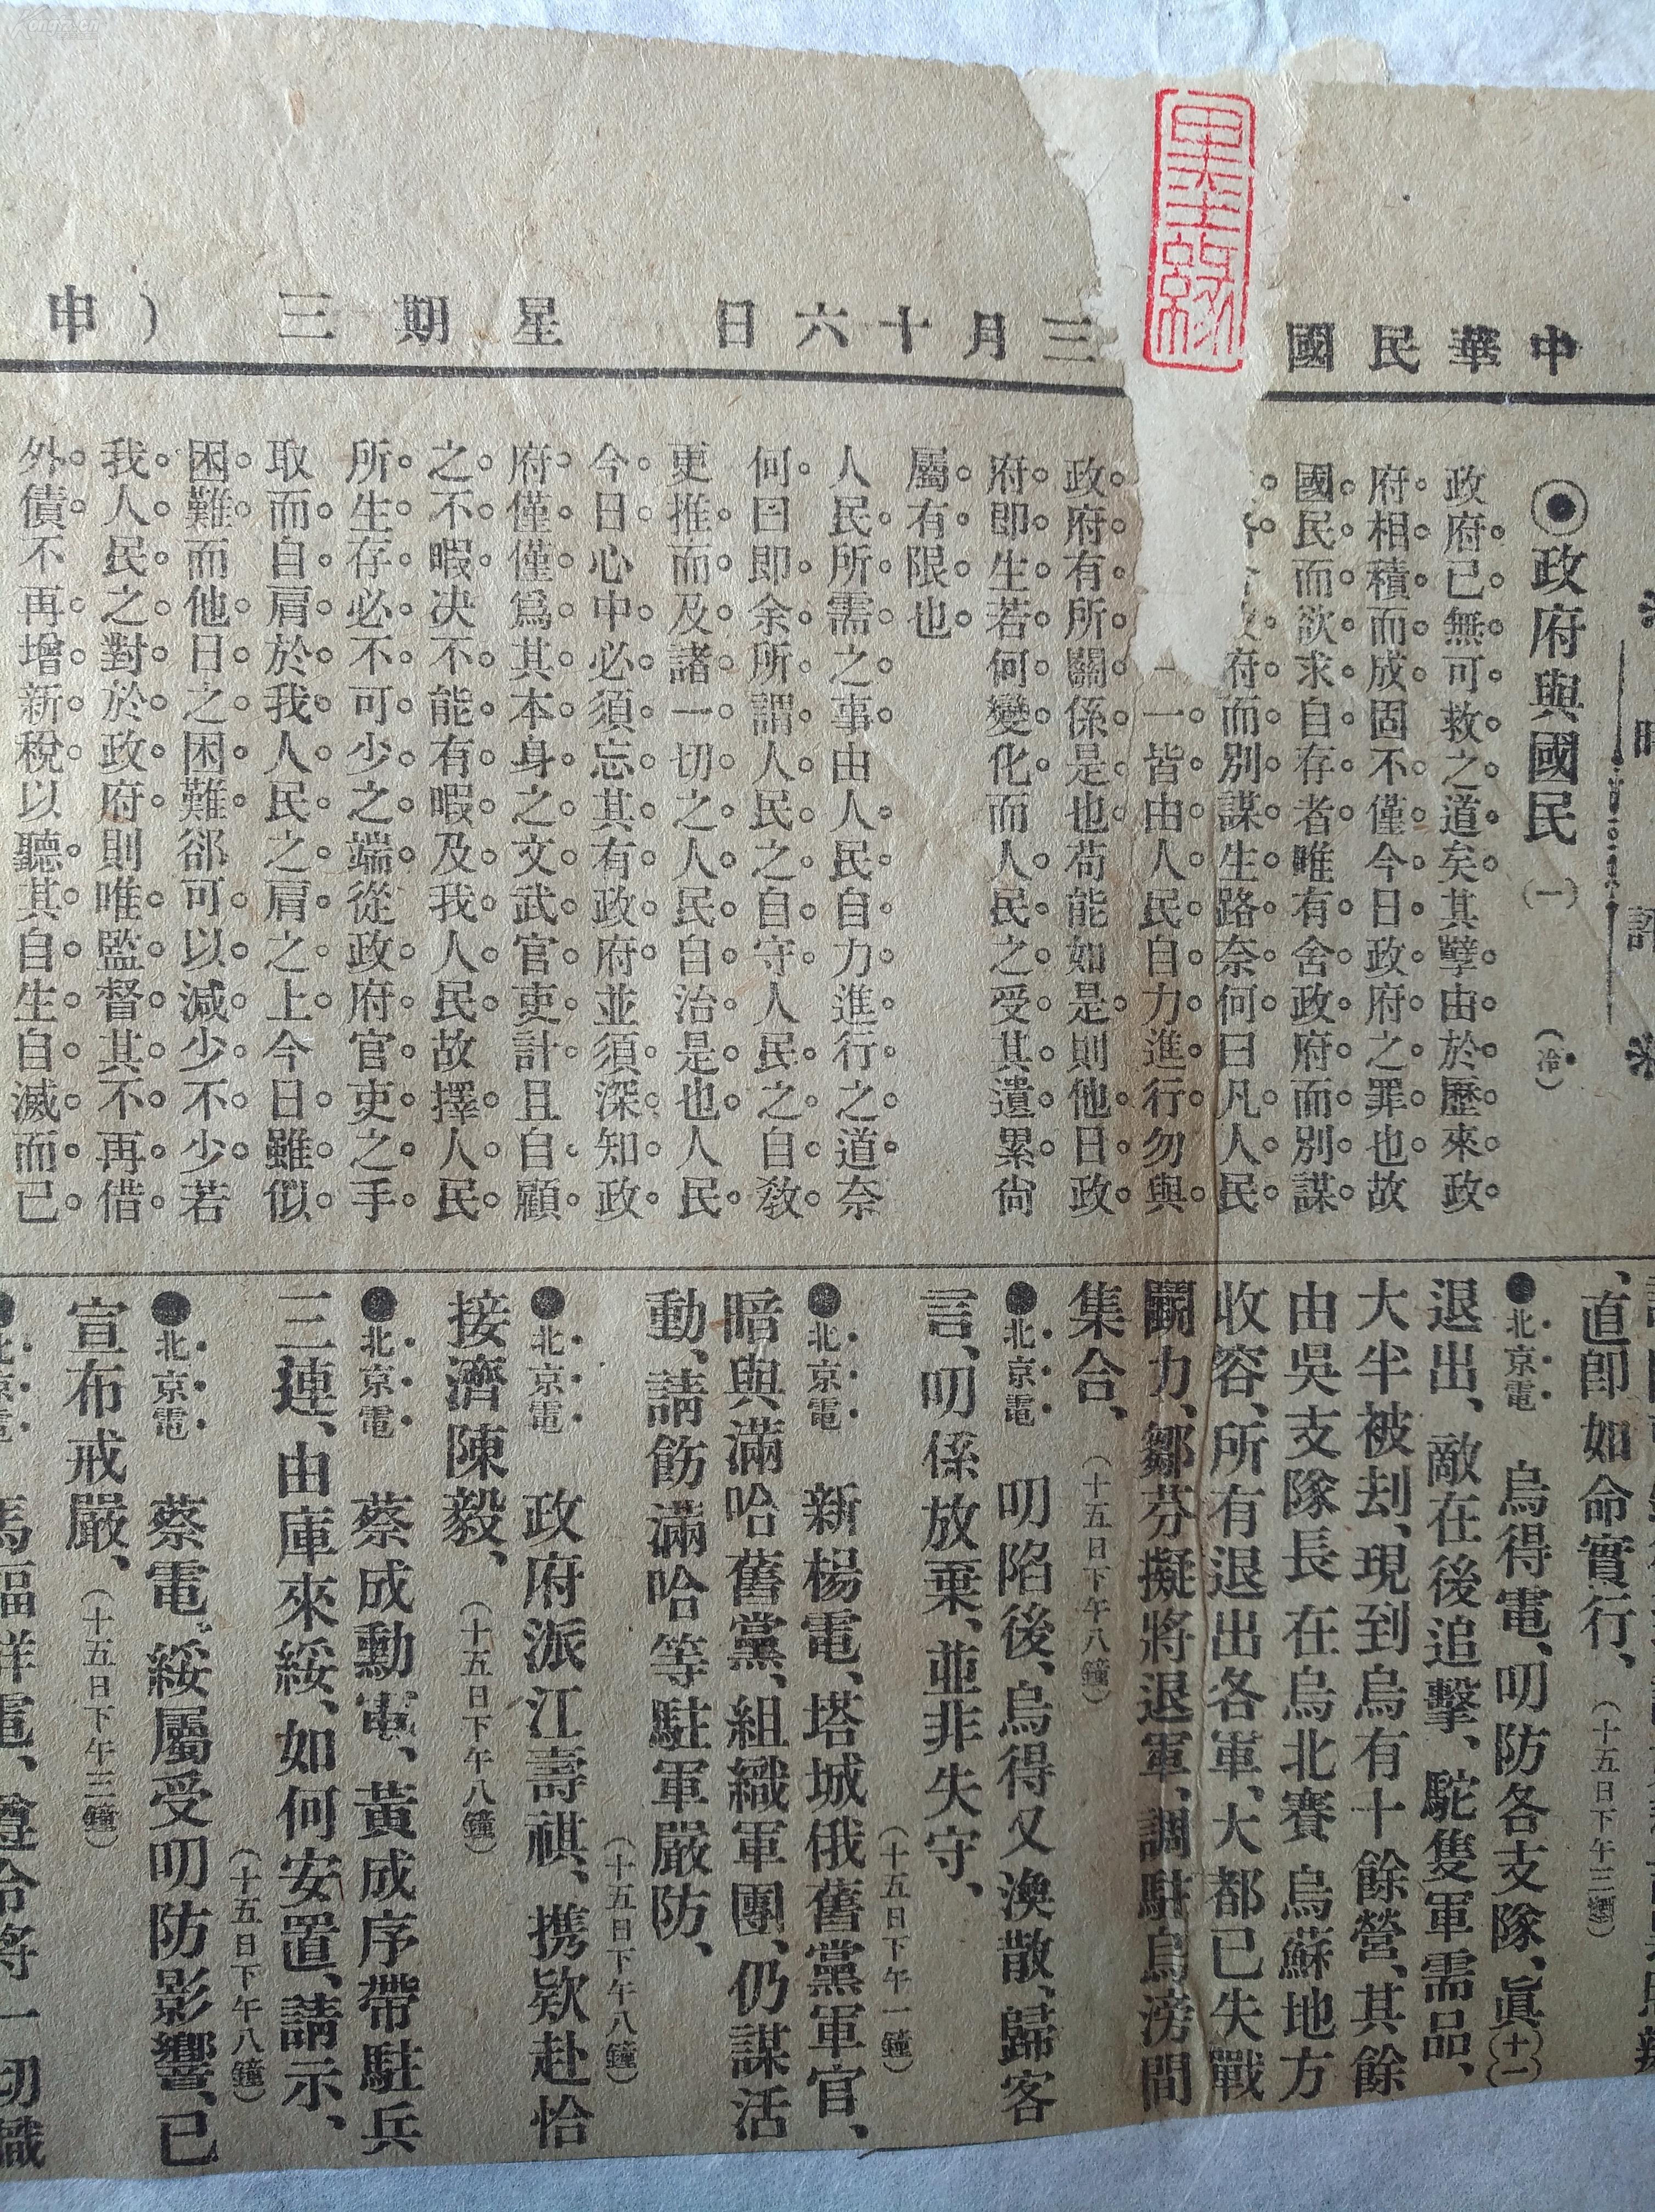 中華民國
三月十六日 星期三 （申
時
評
◉政府與國民 (一) (冷)
政府已無可救之道矣其孽由於歷來政
府相積而成固不僅今日政府之罪也故
國民而欲求自存者唯有舍政府而別謀
府而別謀生路奈何曰凡人民
一皆由人民自力進行勿與
政府有所關係是也苟能如是則他日政
府即生若何變化而人民之受其遺累尙
屬有限也
人民所需之事由人民自力進行之道奈
何曰即余所謂人民之自守人民之自敎
更推而及諸一切之人民自治是也人民
今日心中必須忘其有政府並須深知政
府僅僅爲其本身之文武官吏計且自顧
之不暇决不能有暇及我人民故擇人民
所生存必不可少之端從政府官吏之手
取而自肩於我人民之肩之上今日雖似
困難而他日之困難郤可以減少不少若
我人民之對於政府則唯監督其不再借
外債不再增新稅以聽其自生自滅而已
、直卽如命實行、(十五日下午三鐘)
●北京電 烏得電、叨防各支隊、眞(十一)
退出、敵在後追擊、駝隻軍需品、
大半被刦、現到烏有十餘營、其餘
由吳支隊長在烏北賽烏蘇地方
收容、所有退出各軍、大都已失戰
鬬力、鄒芬擬將退軍、調駐烏滂間
集合、(十五日下午八鐘)
●北京電 叨陷後、烏得又渙散、歸客
言、叨係放棄、並非失守、
(十五日下午一鐘)
●北京電 新楊電、塔城俄舊黨軍官、
暗與滿哈舊黨、組織軍團、仍謀活
動、請飭滿哈等駐軍嚴防、
(十五日下午八鐘)
●北京電 政府派江壽祺、携欵赴恰
接濟陳毅、(十五日下午八鐘)
●北京電 蔡成勳電、黃成序帶駐兵
三連、由庫來綏、如何安置、請示、
(十五日下午八鐘)
●北京電 蔡電、綏屬受叨防影響、已
宣布戒嚴、(十五日下午三鐘)
●北京電 馬福祥電、遵令將一切職